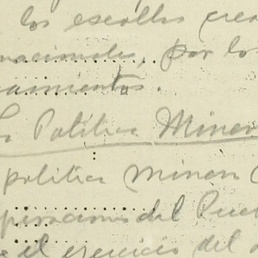 los escollos crea
nacionales, por los
amientos.
La Política Miner
política minera
piraciones del Pueb
el ejercicio del